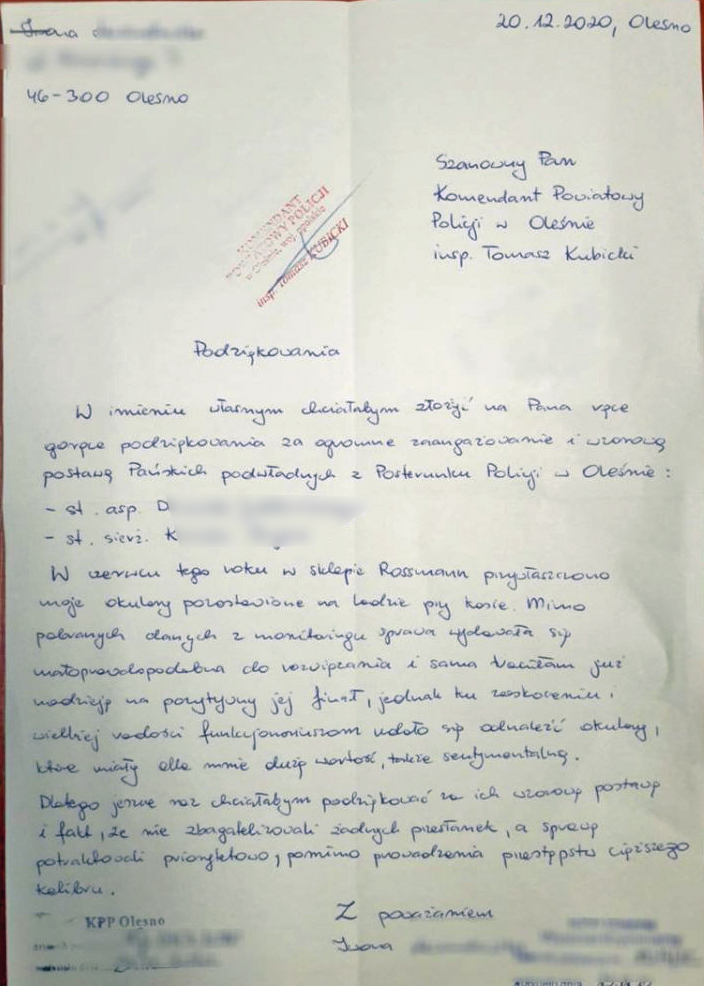 Iwona
20.12.2020, Olesno
46-300 Olesno
Szanowny Pan
Komendant Powiatowy
Policji w Oleśnie
insp. Tomasz Kubicki
KOMENDANT
POWIATOWY POLICJI
w Oleśnie, woj. opolskie
insp. Tomasz KUBICKI
Podziękowania
W imieniu własnym chciałabym złożyć na Pana ręce
gorące podziękowania za ogromne zaangażowanie i wzorową
postawę Pańskich podwładnych z Posterunku Policji w Oleśnie :
- st. asp. D
- st. sierż. K
W czerwcu tego roku w sklepie Rossmann przywłaszczono
moje okulary pozostawione na ladzie przy kasie. Mimo
pobranych danych z monitoringu sprawa wydawała się
małoprawdopodobna do rozwiązania i sama traciłam już
nadzieję na pozytywny jej finał, jednak ku zaskoczeniu i
wielkiej radości funkcjonariuszom udało się odnaleźć okulary,
które miały dla mnie dużą wartość, także sentymentalną.
Dlatego jeszcze raz chciałabym podziękować za ich wzorową postawę
i fakt, że nie zbagatelizowali żadnych przesłanek, a sprawę
potraktowali priorytetowo, pomimo prowadzenia przestępstw cięższego
kalibru.
Z poważaniem
Iwona
KPP Olesno